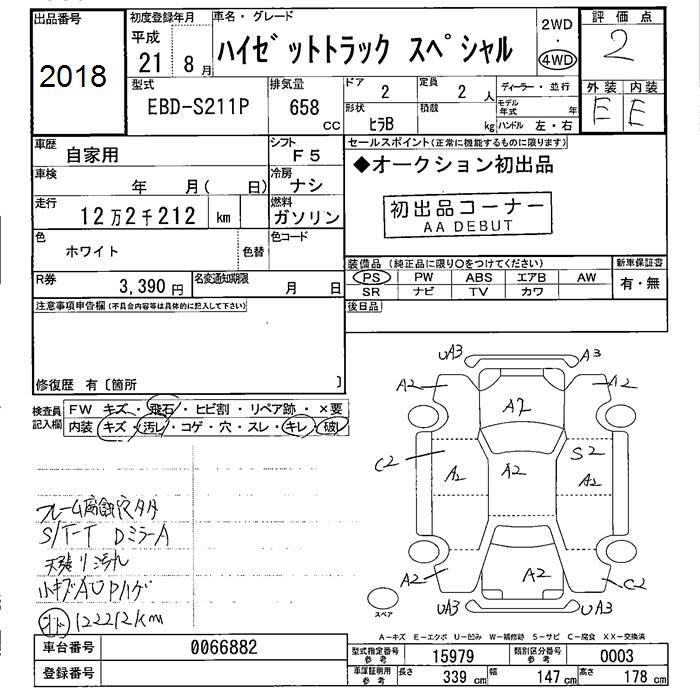 出品番号 初度登録年月 車名・グレード 2WD 評価点
2018 平成 21 8月 ハイゼットトラック スペシャル ・ 4WD 2
型式 排気量 ドア 定員 ディーラー・並行 外装 内装
EBD-S211P 658 CC 2 2人 モデル年式 年 E E
形状 積載
ヒラB kg ハンドル 左・右
車歴 自家用 シフト F5 セールスポイント(正常に機能するものに限ります)
車検 年 月( 日) 冷房 ナシ ◆オークション初出品
走行 12万2千212 km 燃料 ガソリン 初出品コーナー
AA DEBUT
色 ホワイト 色替 色コード
装備品(純正品に限り○をつけてください) 新車保証書
R券 3,390円 名変通知期限 月 日 PS PW ABS エアB AW 有・無
SR ナビ TV カワ
注意事項申告欄(不具合内容等は具体的に記入して下さい) 後日品
修復歴 有〔箇所 〕
検査員記入欄 FW キズ・飛石・ヒビ割・リペア跡・×要
内装 キズ・汚レ・コゲ・穴・スレ・キレ・破レ
UA3 A3
A2 A2
A2
C2 S2
A2 A2 A2
フレーム腐食
S/T-T DミラーA
天張り汚れ
小キズAUPハゲ
122212km
A2 A2 C2
スペア UA3 UA3
A-キズ E-エクボ U-凹み W-補修跡 S-サビ C-腐食 XX-交換済
車台番号 0066882 型式指定番号 参考 15979 類別区分番号 参考 0003
登録番号 車庫証明用 参考 長さ 339 cm 幅 147 cm 高さ 178 cm